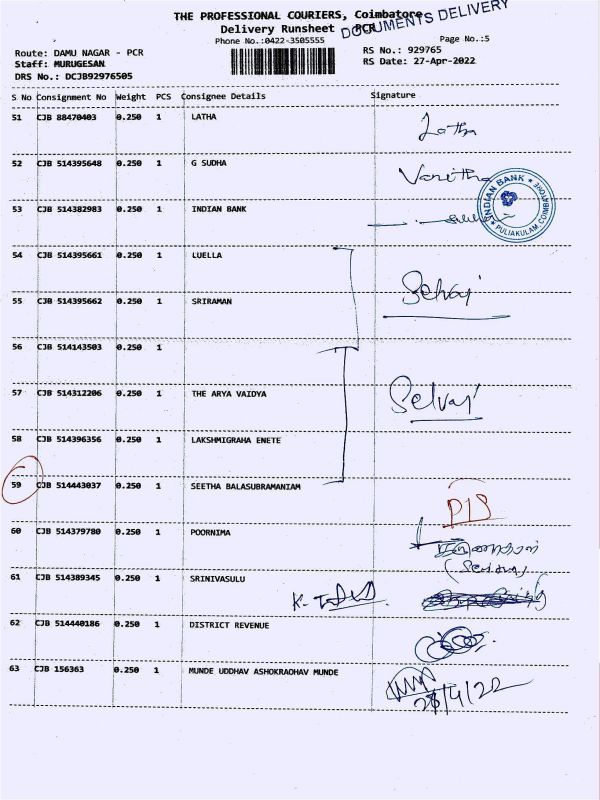 THE PROFESSIONAL COURIERS, Coimbatore
Delivery Runsheet - PCR
DOCUMENTS DELIVERY
Phone No.:0422-3505555
Page No.:5
Route: DAMU NAGAR - PCR
RS No.: 929765
Staff: MURUGESAN
RS Date: 27-Apr-2022
DRS No.: DCJB92976505
S No Consignment No Weight PCS Consignee Details Signature
51 CJB 88470403 0.250 1 LATHA Latha
52 CJB 514395648 0.250 1 G SUDHA Vanitha
53 CJB 514382983 0.250 1 INDIAN BANK
INDIAN BANK
PULIAKULAM COIMBATORE
54 CJB 514395661 0.250 1 LUELLA
Selvaj
55 CJB 514395662 0.250 1 SRIRAMAN
56 CJB 514143503 0.250 1
57 CJB 514312206 0.250 1 THE ARYA VAIDYA Selvaj
58 CJB 514396356 0.250 1 LAKSHMIGRAHA ENETE
59 CJB 514443037 0.250 1 SEETHA BALASUBRAMANIAM
60 CJB 514379780 0.250 1 POORNIMA
61 CJB 514389345 0.250 1 SRINIVASULU
62 CJB 514440186 0.250 1 DISTRICT REVENUE
63 CJB 156363 0.250 1 MUNDE UDDHAV ASHOKRAOHAV MUNDE